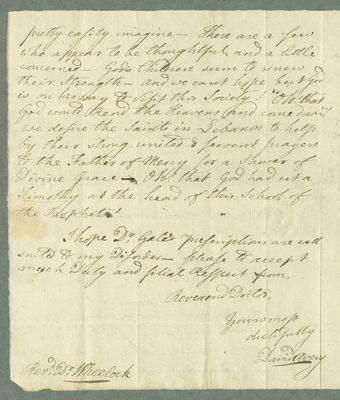 pretty easily imagine — There are a few
who appear to be thoughtful, and a little
concerned — God's Children seem to renew
their Strength — And we can't hope but God
is on his way to visit this Society "Oh that
God would Rend the Heavens, and come down"
we desire the Saints in Lebanon to help
by their strong, united & fervent prayers
to the Father of Mercy for a Shower of
Divine Grace — Oh! that God had set a
Timothy at the head of this School of
the Prophets!
I hope Dr Gale's prescriptions are well
suited to my Disorder — please to accept
much Duty and filial Respect from,
Reverend Doctor,
Yours most
dutifully
David Avery
Revd. Dr. Wheelock